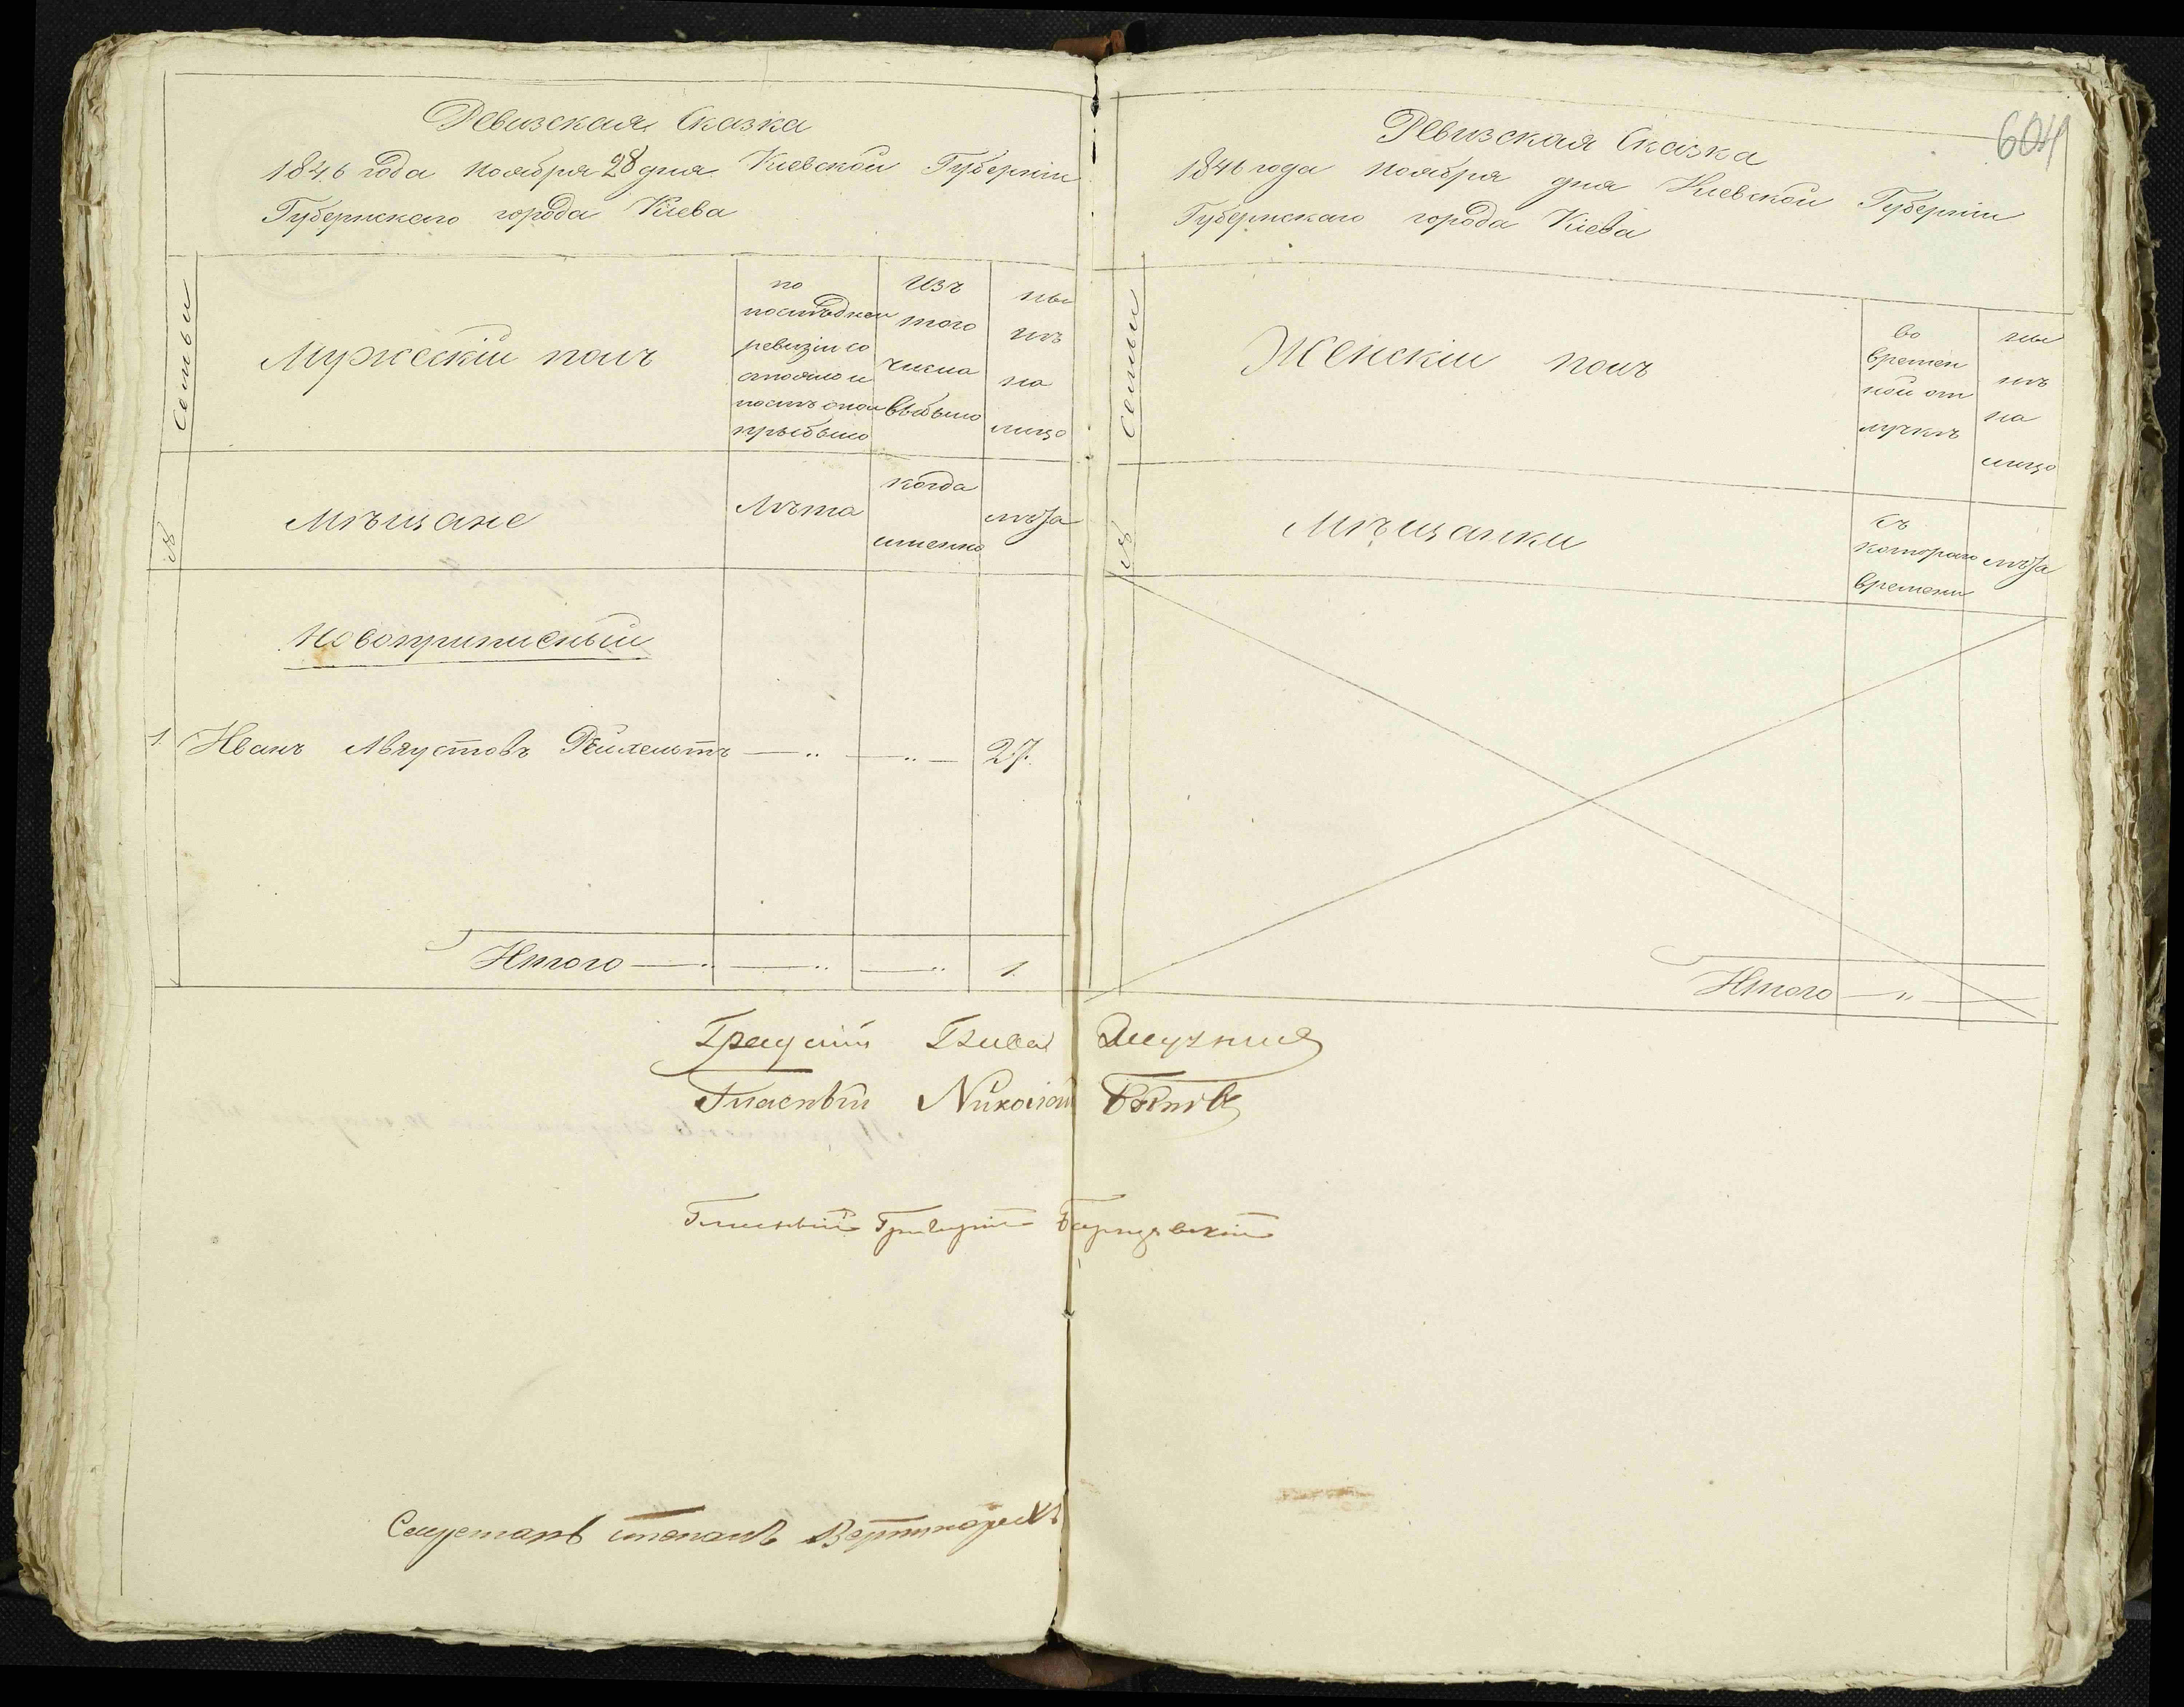 Ревизская Сказка
1846 года ноября 28 дня Киевской Губерніи
Губернскаго города Кіева
№ Семьи
Мужескій полъ
по
последней
ревизіи со
стояло и
послѣ оной
прыбыло
изъ
того
числа
выбыло
ны
нѣ
на
лицо
Мѣщане
Лѣта
когда
именно
лѣта
Новоприписный
1. Иванъ Августовъ Рейхельтъ — „ — „ — 27.
Итого — „ — „ — „ 1.
604
Ревизская Сказка
1846 года ноября дня Киевской Губерніи
Губернскаго города Кіева
№ Семьи
Женскій полъ
во
времен
ной от
лучкѣ
ны
нѣ
на
лицо
Мѣщанки
съ
котораго
времени
лѣта
Итого — „ —
Гласный Николай
Гласный Григорій
степанъ